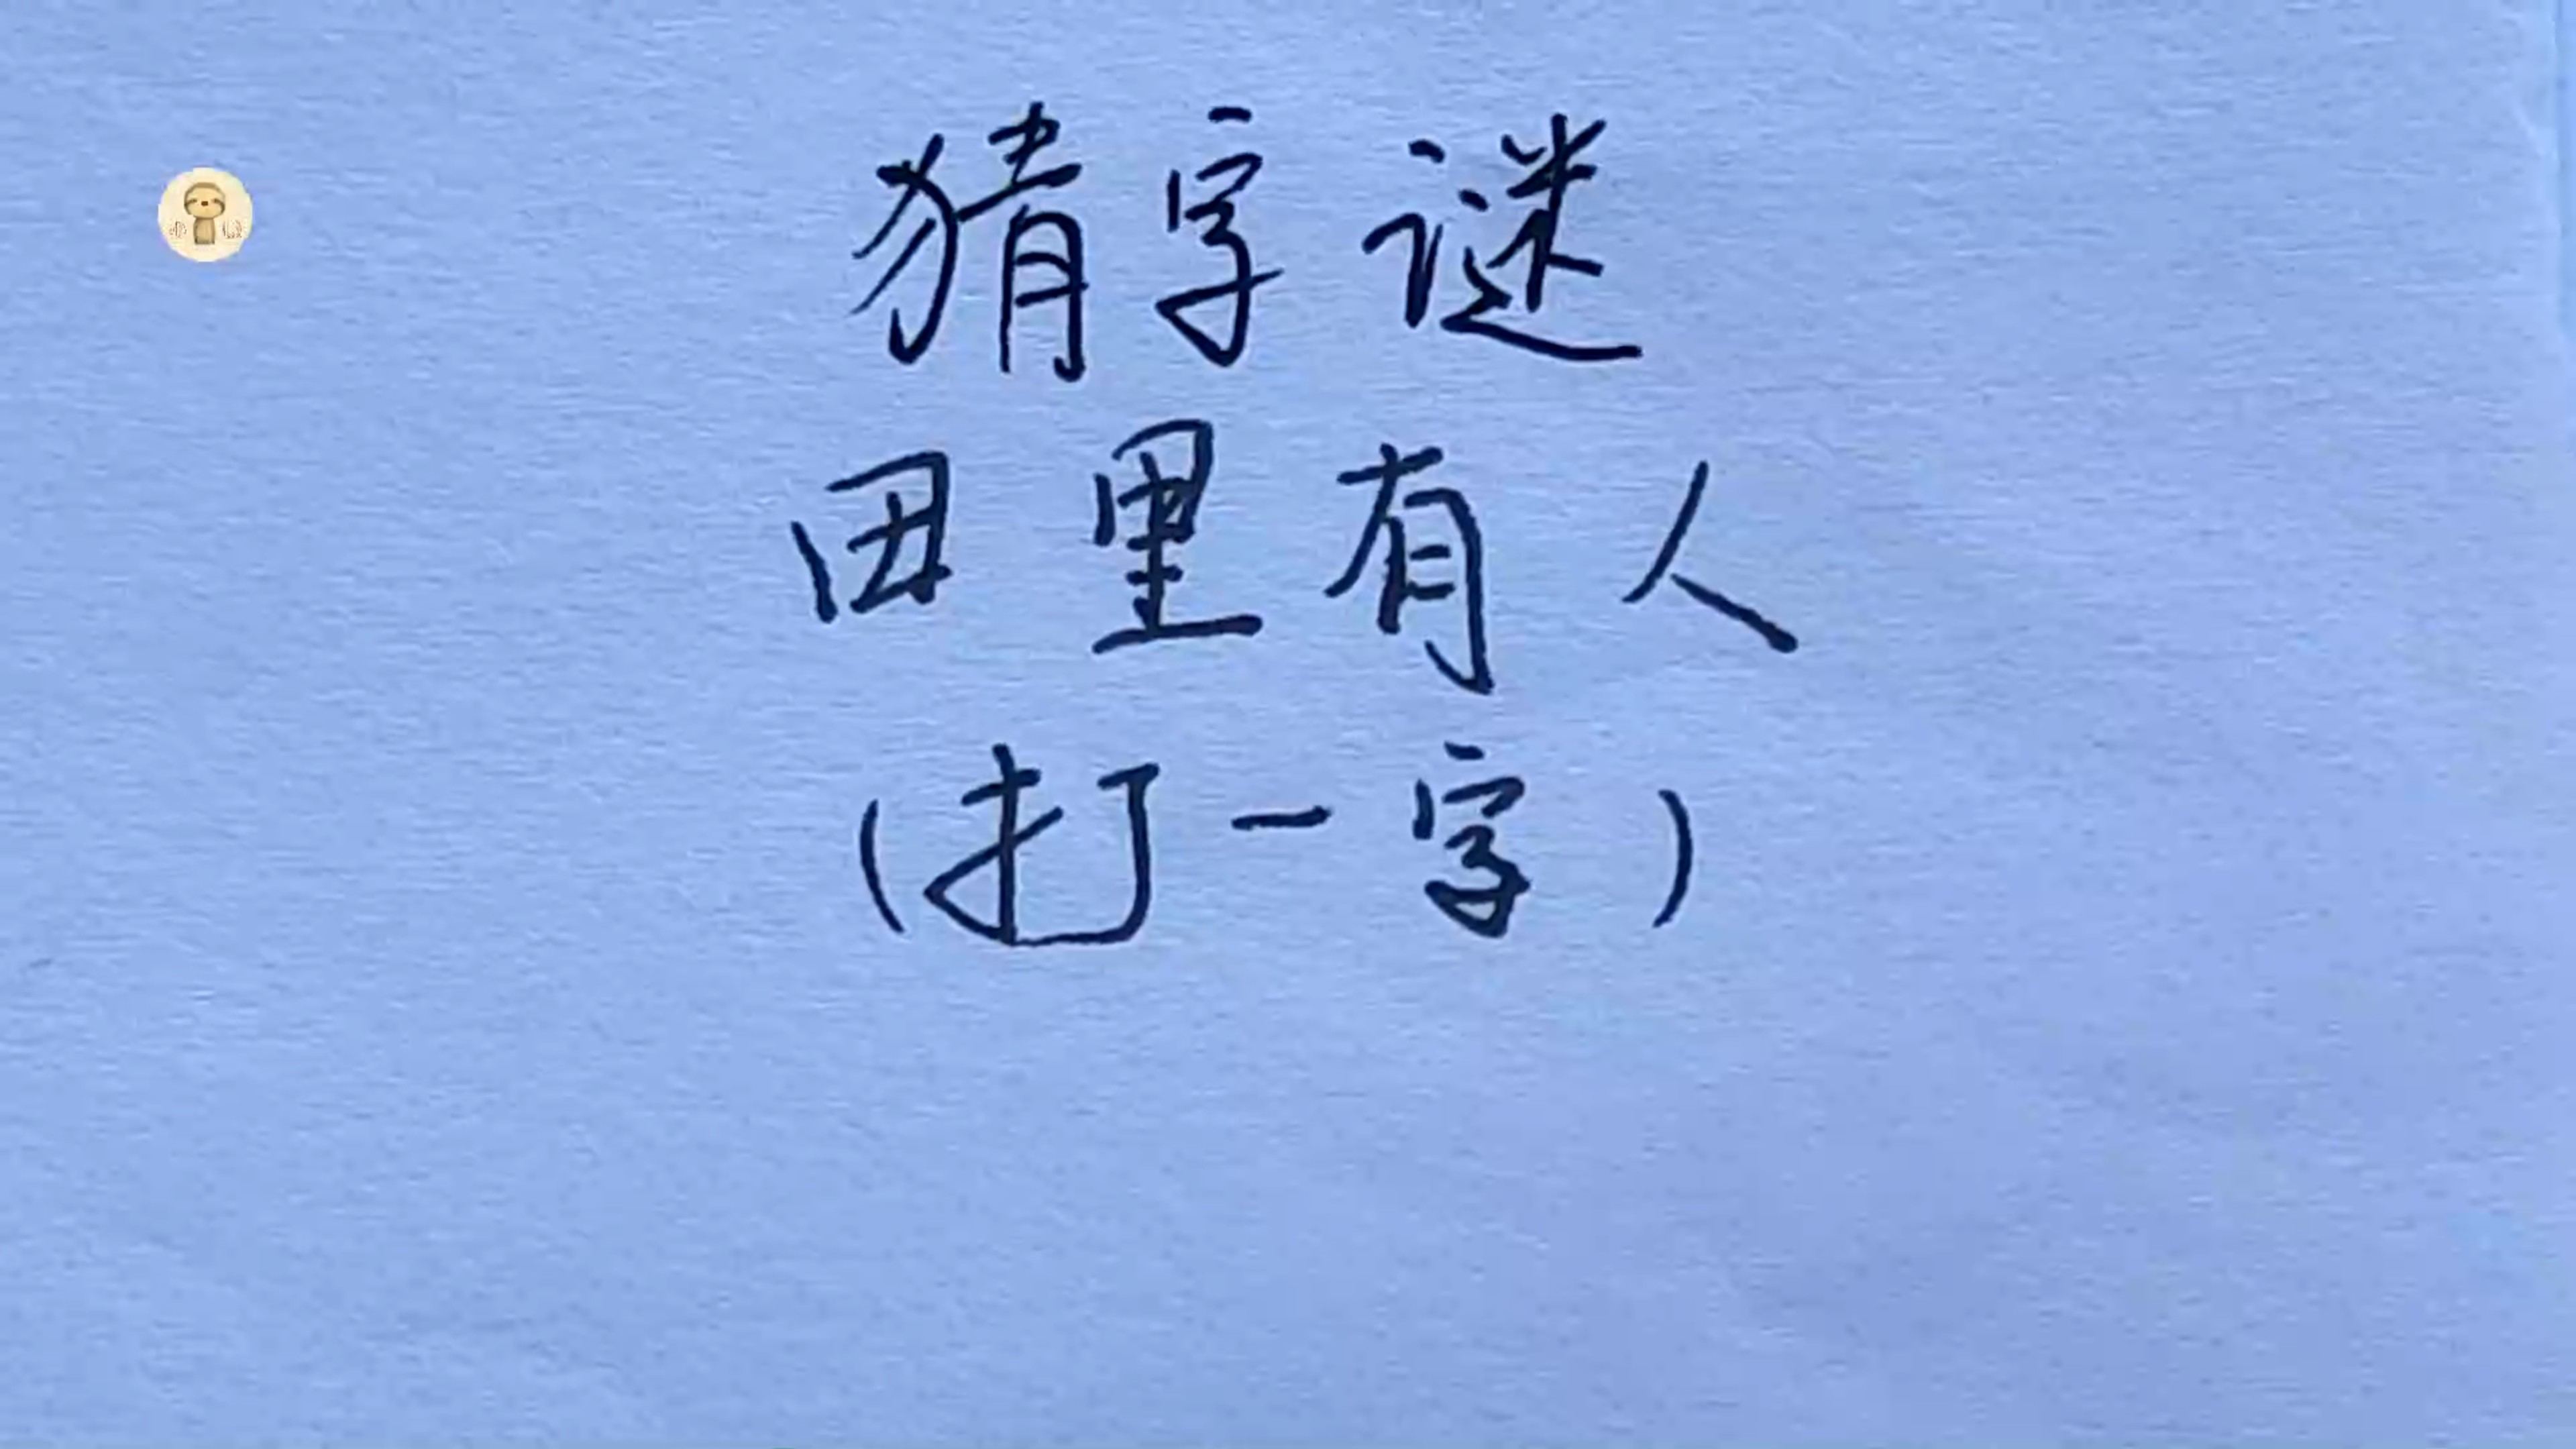 猜字谜
田里有人
(打一字)